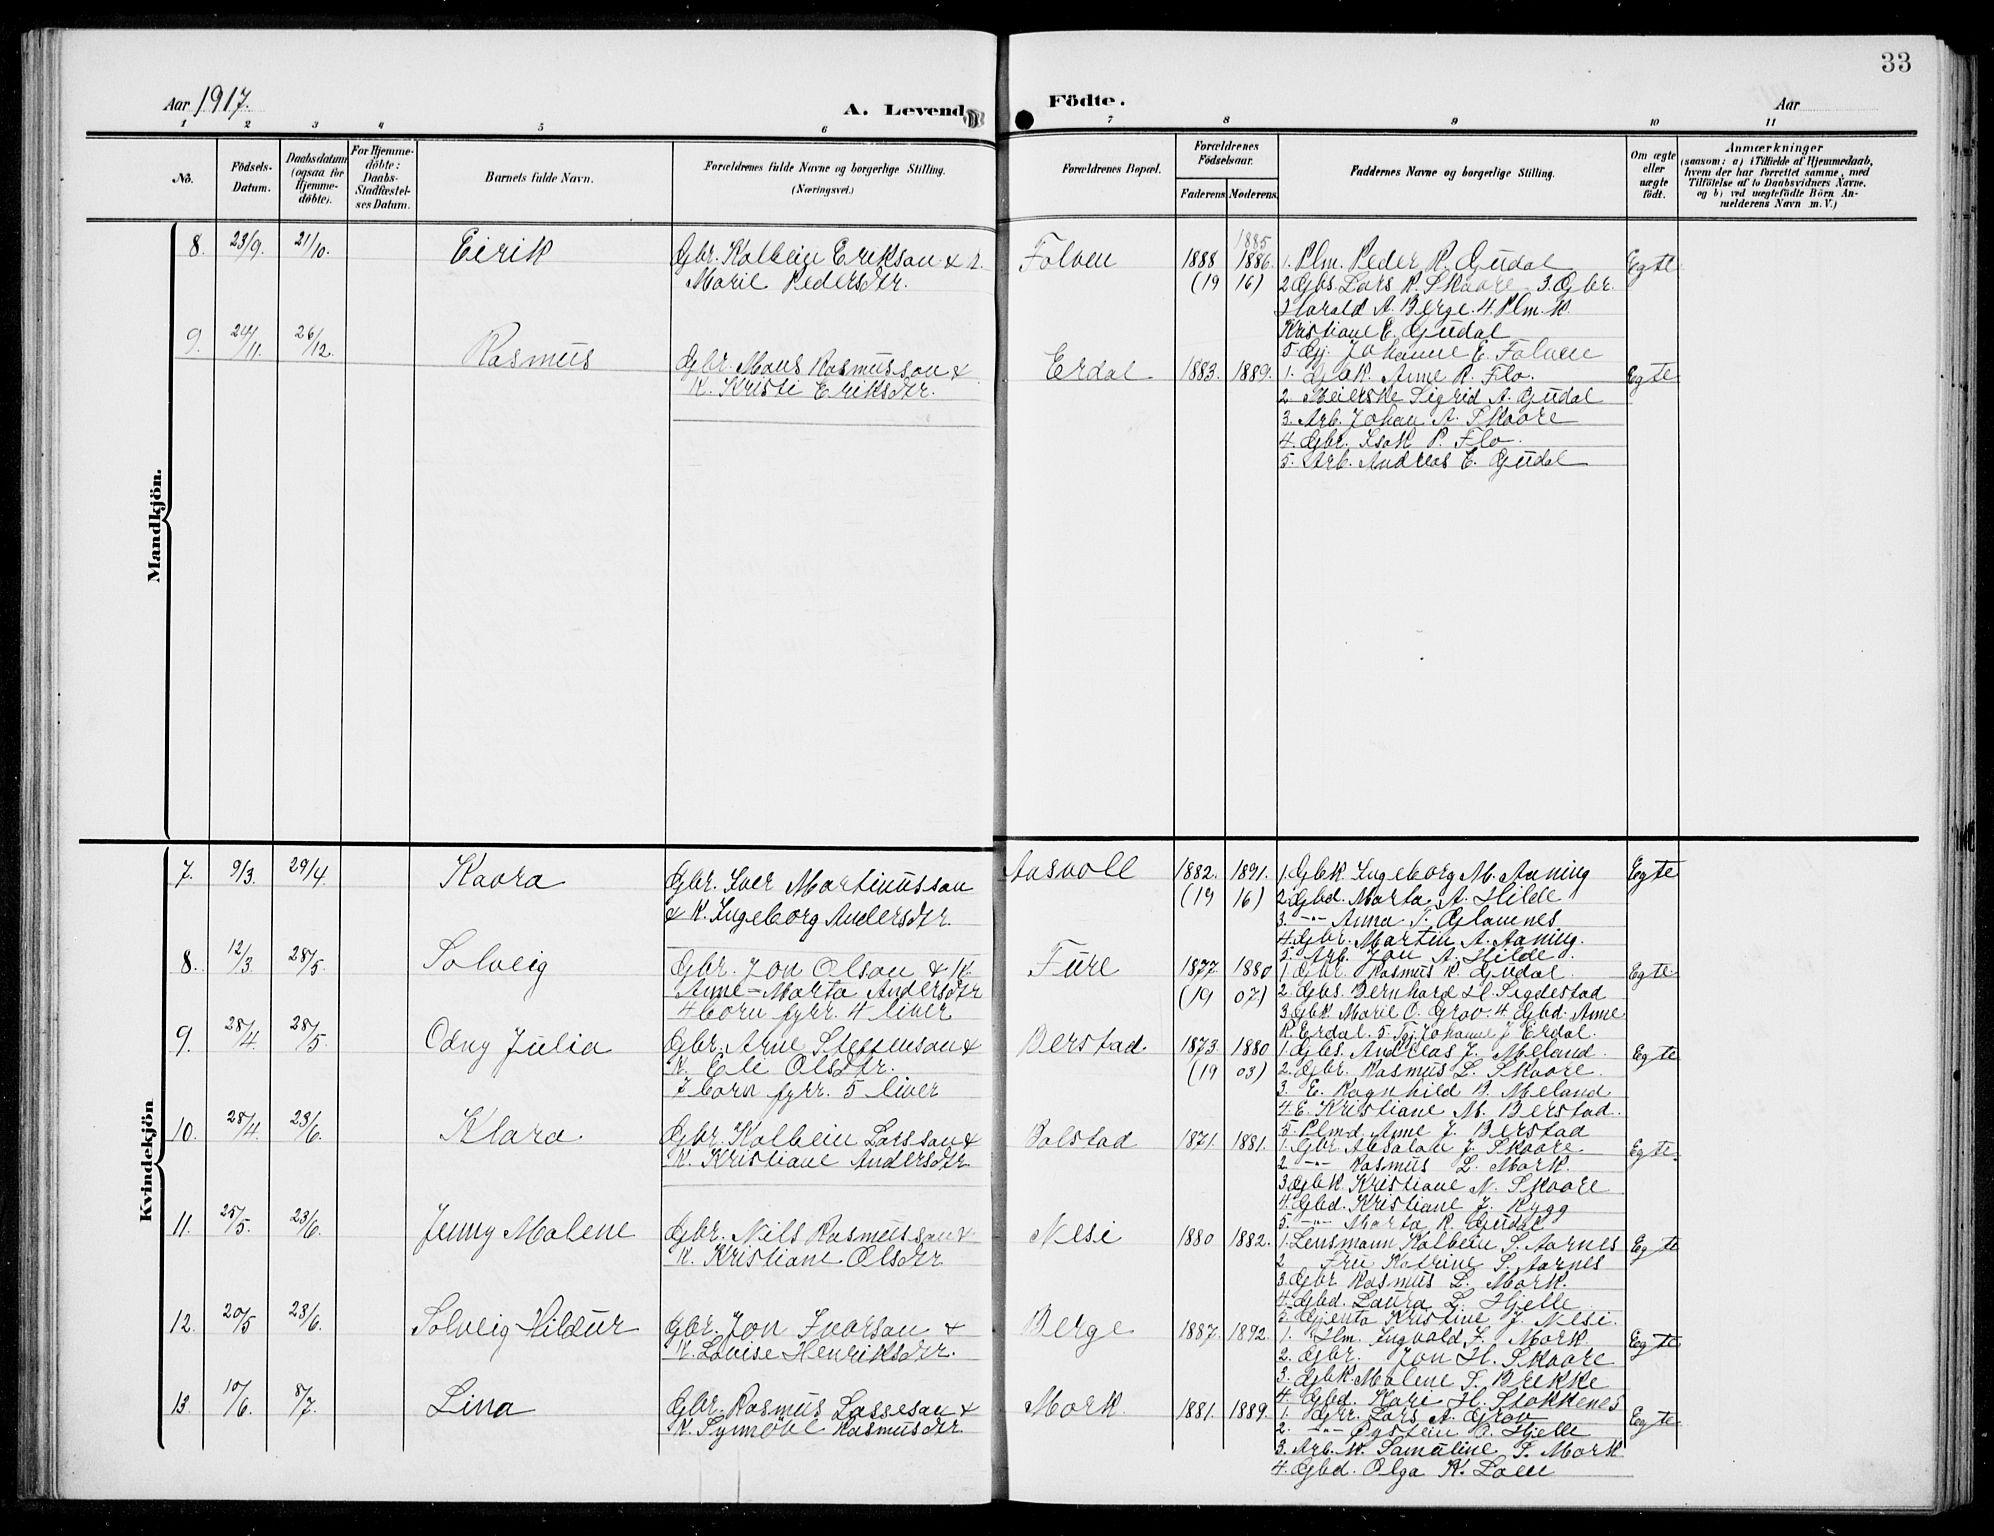 33
Aar 1917.
A. Levende Födte.
Aar
1 2 3 4 5 6 7 8 9 10 11
No.
Födsels-Datum.
Daabsdatum (ogsaa for Hjemmedöbte).
For Hjemmedöbte: Daabs-Stadfæstelses Datum.
Barnets fulde Navn.
Forældrenes fulde Navne og borgerlige Stilling. (Næringsvei.)
Forældrenes Bopæl.
Forældrenes Födselsaar.
Faderens. Moderens.
Faddernes Navne og borgerlige Stilling.
Om ægte eller uægte födt.
Anmærkninger
(saasom: a) i Tilfælde af Hjemmedaab, hvem der har forrettet samme, med Tilföielse af to Daabsvidners Navne, og b) ved uægtefödte Börn Anmelderens Navn m. V.)
Mandkjön.
8. 23/9. 21/10. Eirik
Gbr. Kolbein Erikson & K.
Marie Pedersdtr.
Folven
1888 1885 1886.
(19 16)
1. Plm. Peder R. Gjudal
2. Gbs. Lars R. Skaare 3. Gbr.
Harald A. Berge. 4. Plm. K.
Kristiane E. Gjudal
5. Gj. Johanne E. Folven
Egte
9. 24/11. 26/12. Rasmus
Gbr. Mons Rasmusson &
K. Kristi Eriksdtr.
Erdal 1883. 1889.
1. Gbk. Anne R. Flo.
2. Meierske Sigrid A. Gjudal
3. Arb. Johan A. Skaare
4. Gbr. Isak P. Flo.
5. Arb. Andreas E. Gjudal
Egte
Kvindekjön
7. 9/3. 29/4. Kaara
Gbr. Iver Martinusson
& K. Ingeborg Andersdtr.
Aasvoll 1882. 1891.
(19 16)
1. Gbk Ingeborg M. Aaning
2. Gbd. Marta A. Hilde
3. -"- Anna T. Glomnes
4. Gbr. Martin A. Aaning.
5. Arb. Jon A. Hilde.
Egte
8. 12/3. 28/5. Solveig
Gbr. Jon Olson & K.
Anne-Marta Andersdtr
4 born fyrr. 4 liver
Fure 1877. 1880
(19 07)
1. Gbr. Rasmus K. Gjudal.
2. Gbs. Bernhard H. Sigdestad
3. Gbk Marie O. Grov. 4 Gbd. Anne
R. Erdal. 5. Tj. Johanne J. Erdal.
Egte
9. 28/4. 28/5. Odny Julia
Gbr. Arne Steffenson &
K. Eli Olsdtr.
7 born fyrr. 5 liver
Berstad. 1873. 1880
(19 03)
1. Gbs. Andreas J. Meland.
2. Gbr. Rasmus L. Skaare.
3. E. Ragnhild B. Meland
4. E. Kristiane M. Berstad.
5. Plmd. Anne J. Berstad
Egte
10. 28/4. 23/6. Klara
Gbr. Kolbein Larsson &
K. Kristiane Andersdtr
Bolstad 1871. 1881.
1. Gbr. Absalon J. Skaare
2. -"- Rasmus L. Mork.
3. Gbk Kristiane N. Skaare
4. Gbd. Kristiane J. Rygg
5. -"- Marta K. Gjudal
Egte.
11. 25/5. 23/6. Jenny Malene
Gbr. Nils Rasmusson &
K. Kristiane Olsdtr
Nesi 1880 1882.
1. Lensmann Kolbein S. Aarnes
2 Fru Katrine S. Aarnes
3. Gbr Rasmus L. Mork.
4. Gbd. Laura L. Hjelle
5. Gjenta Kristine J. Nesi.
Egte
12. 20/5 23/6. Solveig Hildur
Gbr. Jon Ivarson &
K. Lovise Henriksdtr.
Berge 1887. 1892.
1. Hm. Ingvald J. Mork
2. Gbr. Jon H. Skaare
3. Gbk Malene T. Brekke
4. Gbd. Kari H. Stokkenes
Egte
13. 10/6. 8/7. Lina
Gbr. Rasmus Lasseson &
K. Synnöve Rasmusdtr.
Mork. 1881. 1889.
1. Gbr. Lars A. Grov
2. -"- Öystein O. Hjelle
3. Arb. K. Samuline T. Mork
4. Gbd. Olga K. Loen
Egte